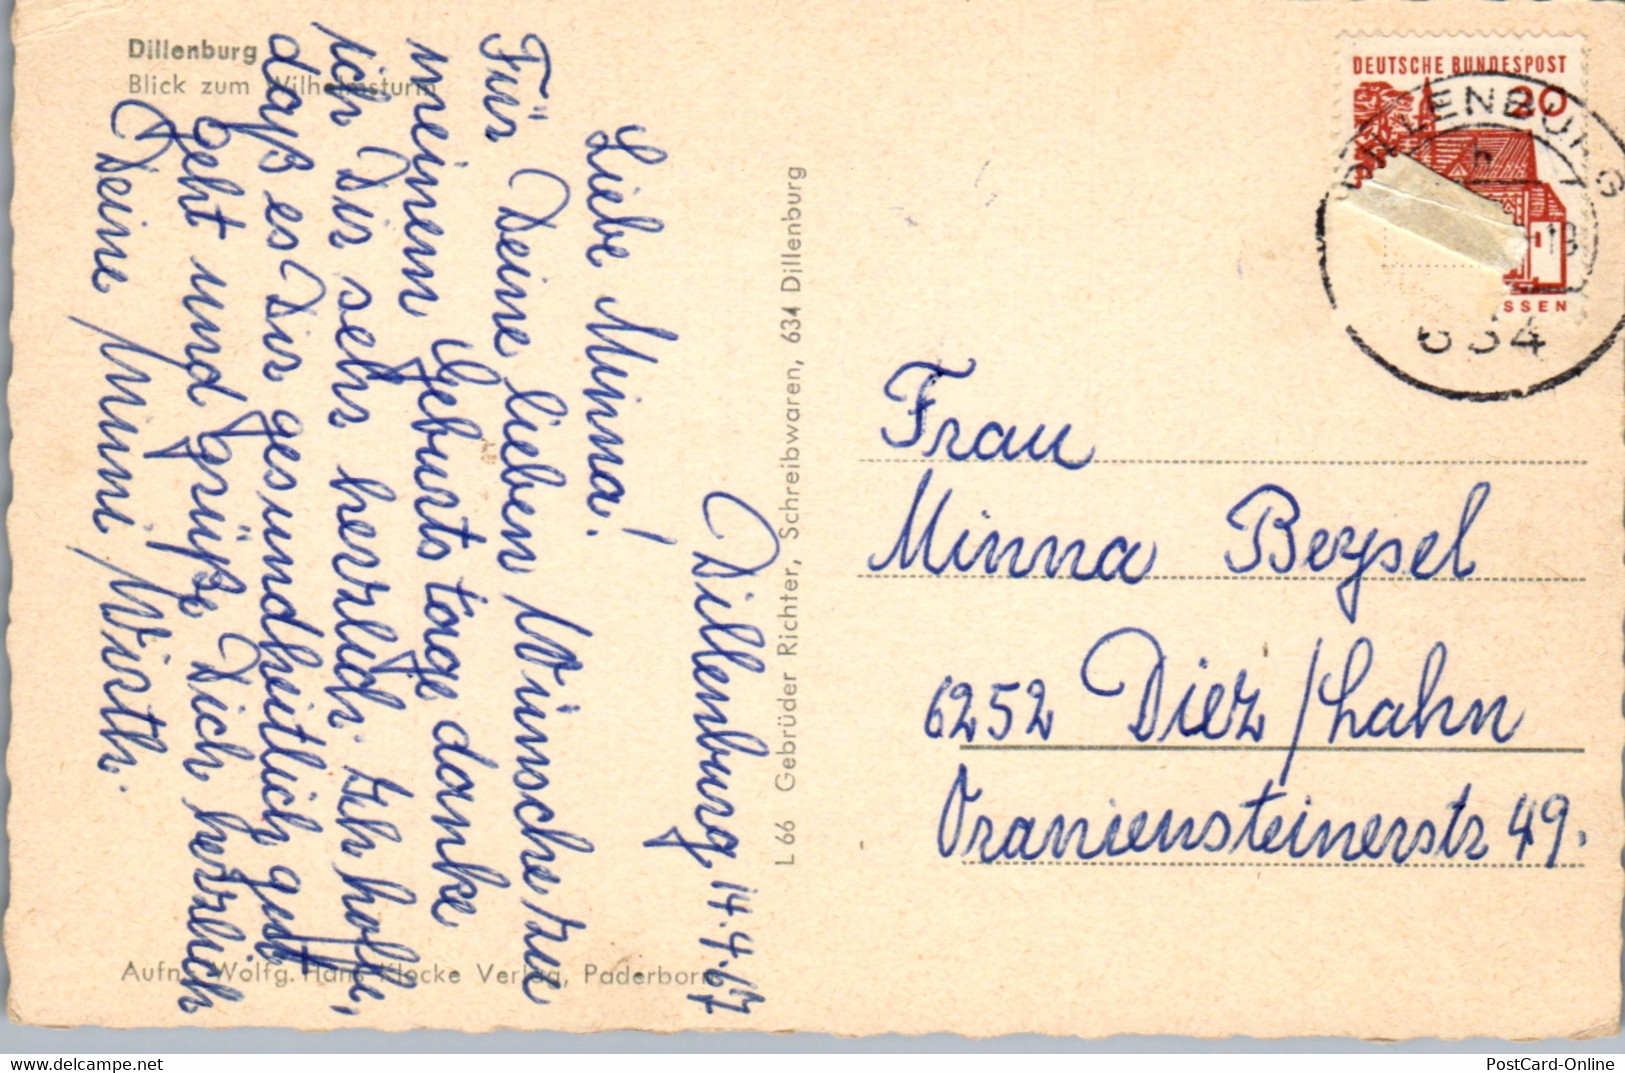 Dillenburg
Blick zum Wilhelmsturm
Dillenburg, 14.4.67
Liebe Minna!
Für Deine lieben Wünsche zu
meinem Geburtstage danke
ich Dir sehr herzlich. Ich hoffe,
daß es Dir gesundheitlich gut
geht und grüße Dich herzlich
Deine Mimi Wirth.
Aufn.: Wolfg. Hans Klocke Verlag, Paderborn
L 66 Gebrüder Richter, Schreibwaren, 634 Dillenburg
DEUTSCHE BUNDESPOST
20
SSEN
DILLENBURG
634
Frau
Minna Beysel
6252 Diez/Lahn
Oraniensteinerstr 49.
PostCard-Online
https://www.delcampe.net